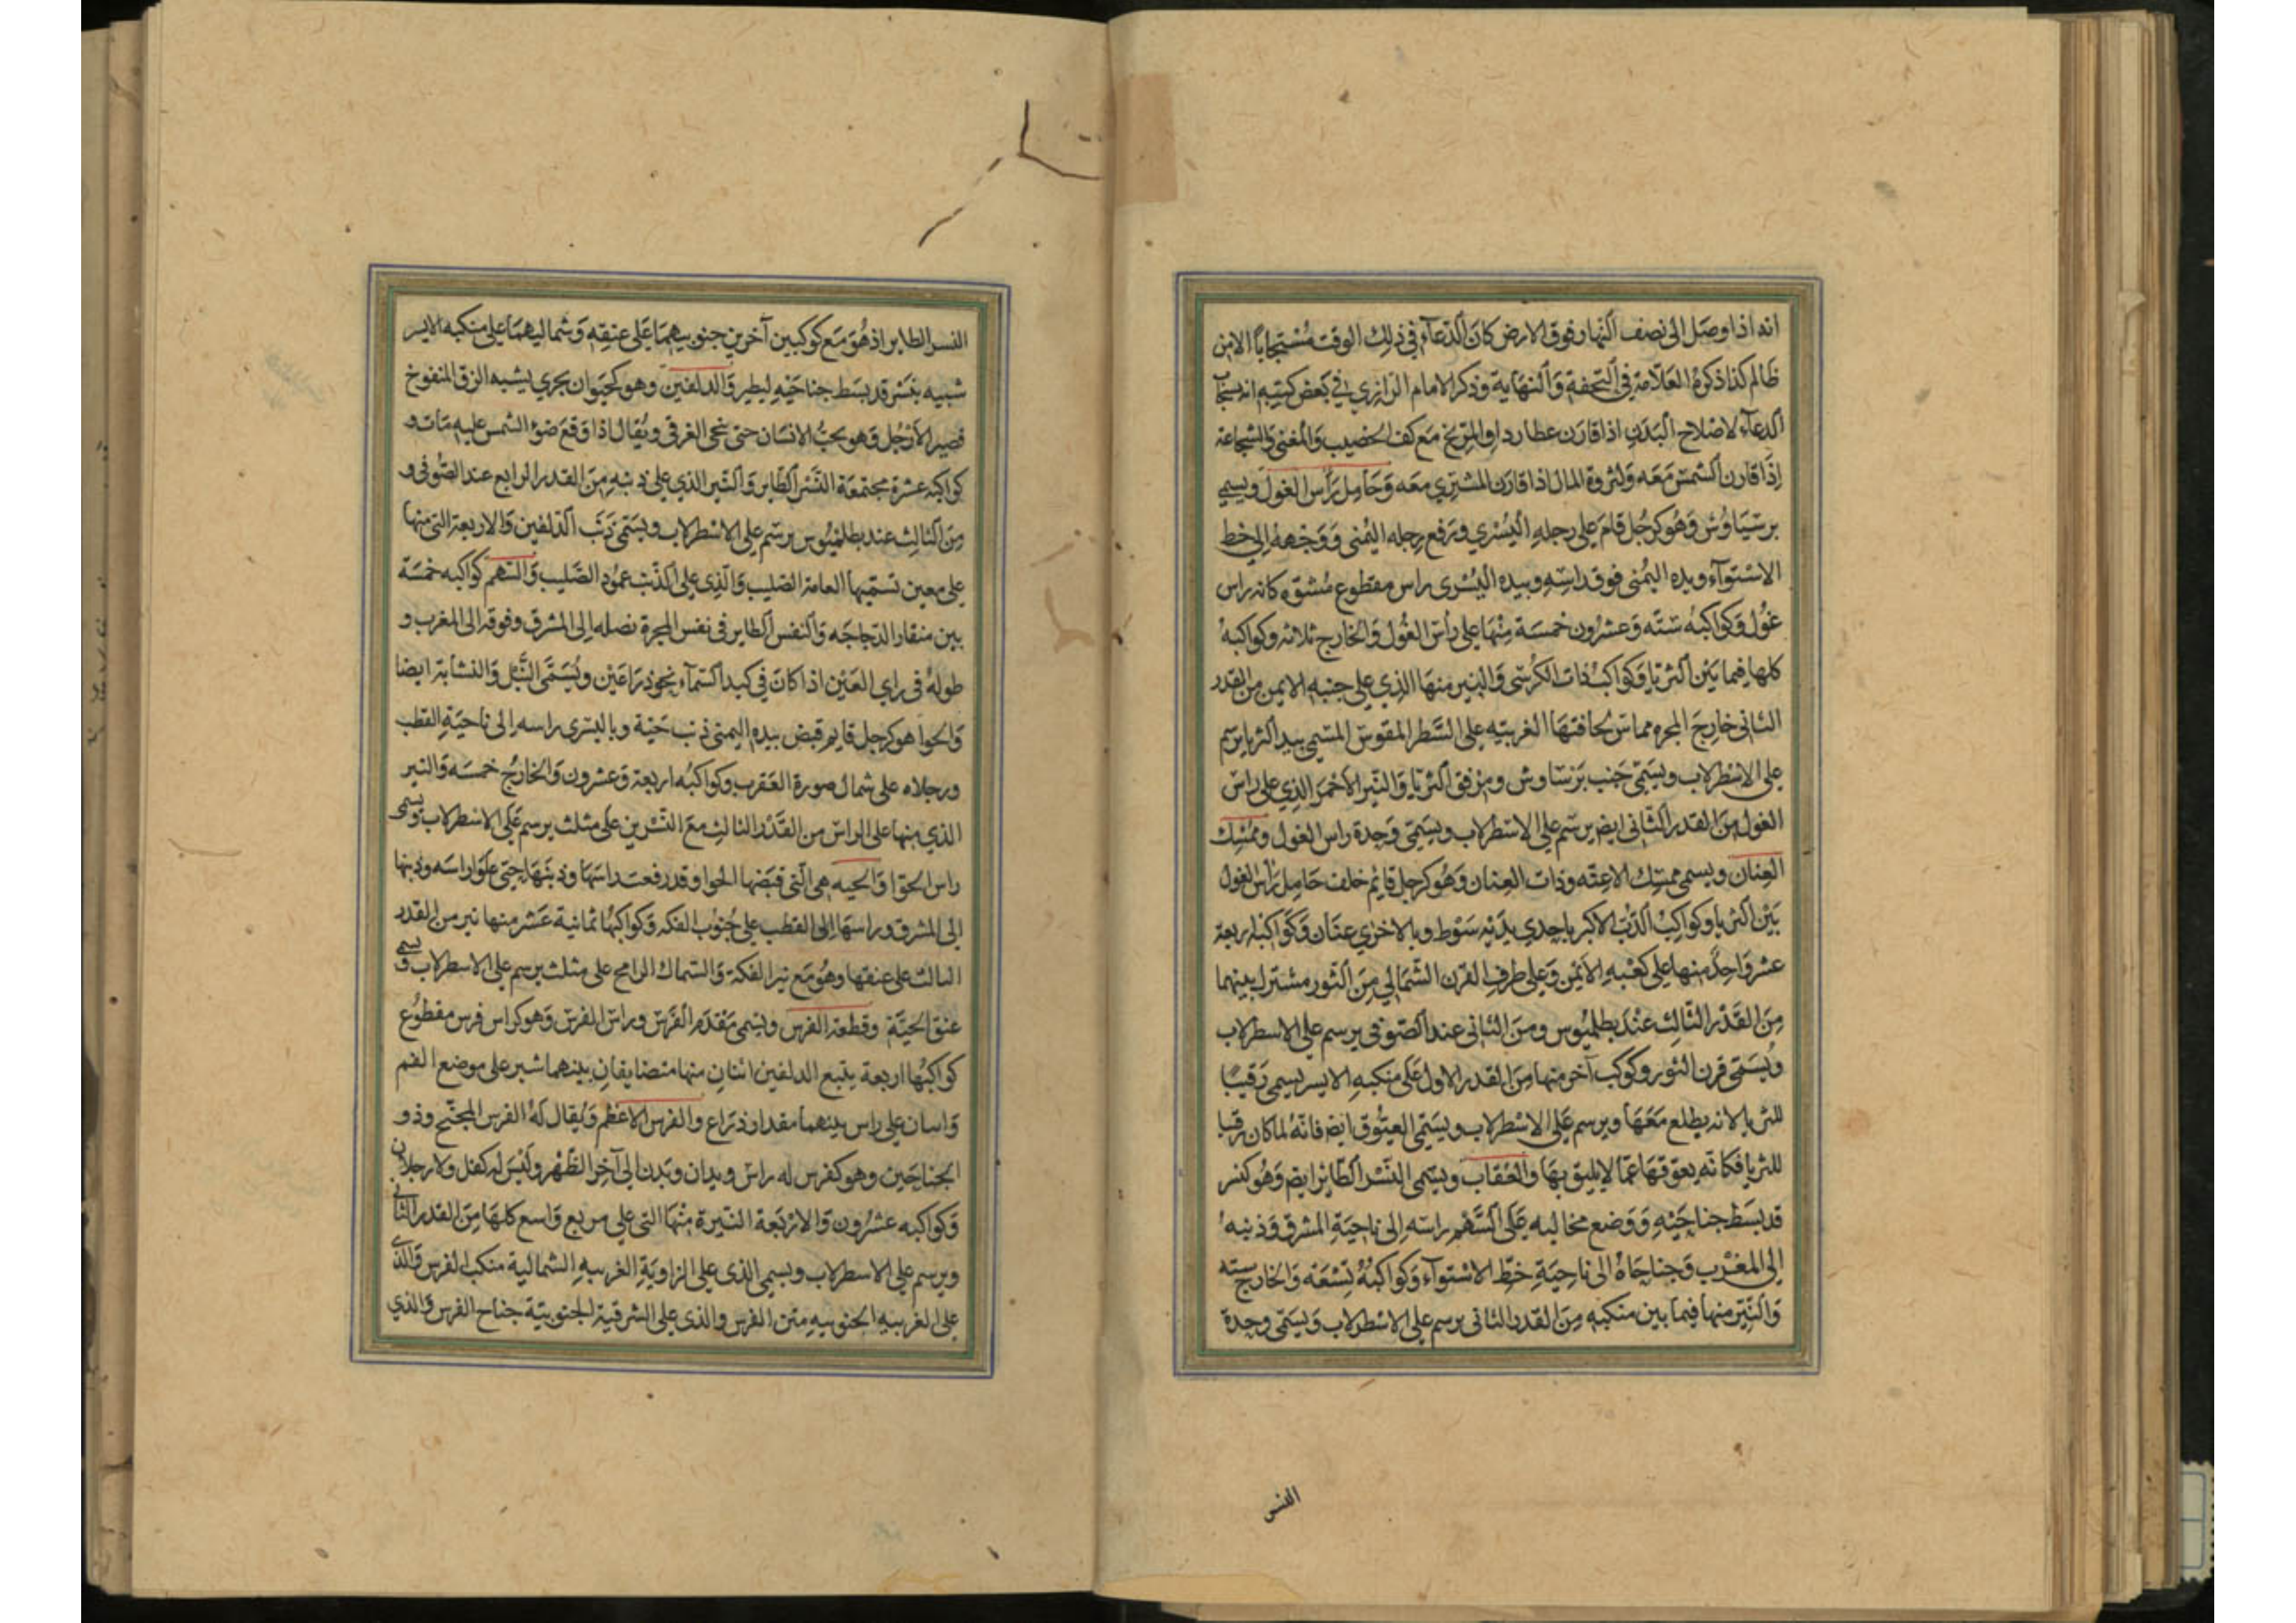 انه اذا وصل الى نصف النهار فوق الارض كان الدعاء في ذلك الوقت مستجابا الا من
ظالم كذا ذكره العلامة في التحفة والنهاية وذكر الامام الرازي في بعض كتبه انه يستجاب
الدعاء لاصلاح البدن اذا قارن عطارد او المريخ مع كف الخضيب والمغنى والشجاعة
اذا قارن الشمس معه ولثروة المال اذا قارن المشتري معه وحامل رأس الغول ويسمى
برسياوش وهو كرجل قام على رجله اليسرى ورفع رجله اليمنى ووجهه الى خط
الاستواء ويده اليمنى فوق راسه وبيده اليسرى راس مقطوع مشوه كانه راس
غول وكواكبه ستة وعشرون خمسة منها على رأس الغول والخارج ثلاثة وكواكبه
كلها فيما بين الثريا وكواكب ذات الكرسى والنير منها الذي على جنبه الايمن من القدر
الثانى خارج المجره مماس لحافتها الغربيه على السطر المقوس المسمى بيد الثريا يرسم
على الاسطرلاب ويسمى جنب برشاوش ومرفق الثريا والنير الاحمر الذي على راس
الغول من القدر الثانى ايضا يرسم على الاسطرلاب ويسمى وحده راس الغول وممسك
العنان ويسمى ممسك الاعنه وذات العنان وهو كرجل قائم خلف حامل رأس الغول
بين الثريا وكواكب الدب الاكبر باحدي يديه سوط وبالاخري عنان وكواكبه اربعة
عشر واحد منها على كعبه الايمن وعلى طرف القرن الشمالي من الثور مشترك بينهما
من القدر الثالث عند بطلميوس ومن الثانى عند الصوفي يرسم على الاسطرلاب
ويسمى قرن الثور وكوكب آخر منها من القدر الاول على منكبه الايسر يسمى رقيبا
للثريا لانه يطلع معها ويرسم على الاسطرلاب ويسمى العيوق ايضا فانه لما كان رقيبا
للثريا فكانه يعوقها عما لا يليق بها والعقاب ويسمى النسر الطائر ايضا وهو كنسر
قد بسط جناحيه ووضع مخاليبه على السهم راسه الى ناحية المشرق وذنبه
الى المغرب وجناحاه الى ناحية خط الاستواء وكواكبه تسعة والخارج سته
والنير منها فيما بين منكبيه من القدر الثانى يرسم على الاسطرلاب ويسمى وحده
النسر
النسر الطاير اذ هو مع كوكبين آخرين جنوبيهما على عنقه وشماليهما على منكبه الايسر
شبيه بنسر قد بسط جناحيه ليطير والدلفين وهو كحيوان بحري يشبه الزق المنفوخ
قصير الارجل وهو يحب الانسان حتى ينجي الغرقى ويقال اذا وقع ضوء الشمس عليه مات و
كواكبه عشرة مجتمعة النسر الطاير والنير الذي على ذنبه من القدر الرابع عند الصوفى و
من الثالث عند بطلميوس يرسم على الاسطرلاب ويسمى ذنب الدلفين والاربعة التى منها
على معين تسميها العامة الصليب والذي على الذنب عمود الصليب والسهم كواكبه خمسة
بين منقار الدجاجه والنفس الطاير في نفس المجرة نصله الى المشرق وفوقه الى المغرب و
طوله فى راي العين اذا كان في كبد السماء نحو ذراعين ويسمى النبل والنشابة ايضا
والحوا هو كرجل قايم قبض بيده اليمنى ذنب حية وباليسرى راسه الى ناحية القطب
ورجلاه على شمال صورة العقرب وكواكبه اربعة وعشرون والخارج خمسه والنير
الذي منها على الراس من القدر الثالث مع النسرين على مثلث يرسم على الاسطرلاب ويسمى
راس الحوا والحيه هى التى قبضها الحوا وقد رفعت راسها وذنبها حتى علوا راسه وذنبها
الى المشرق وراسها الى القطب على جنوب الفكه وكواكبها ثمانية عشر منها نير من القدر
الثالث على عنقها وهو مع نير الفكة والسماك الرامح على مثلث يرسم على الاسطرلاب ويسمى
عنق الحية وقطعة الفرس ويسمى مقدم الفرس وراس الفرس وهو كراس فرس مقطوع
كواكبها اربعة يتبع الدلفين اثنان منها متضايقان بينهما شبر على موضع الفم
واثنان على راس بينهما مقدار ذراع والفرس الاعظم ويقال له الفرس المجنح وذو
الجناحين وهو كفرس له راس ويدان وبدن الى آخر الظهر وليس له كفل ولا رجلان
وكواكبه عشرون والاربعة النيرة منها التى على مربع واسع كلها من القدر الثانى
ويرسم على الاسطرلاب ويسمى الذى على الزاوية الغربيه الشمالية منكب الفرس والذى
على الغربيه الجنوبيه متن الفرس والذى على الشرقية الجنوبية جناح الفرس والذي